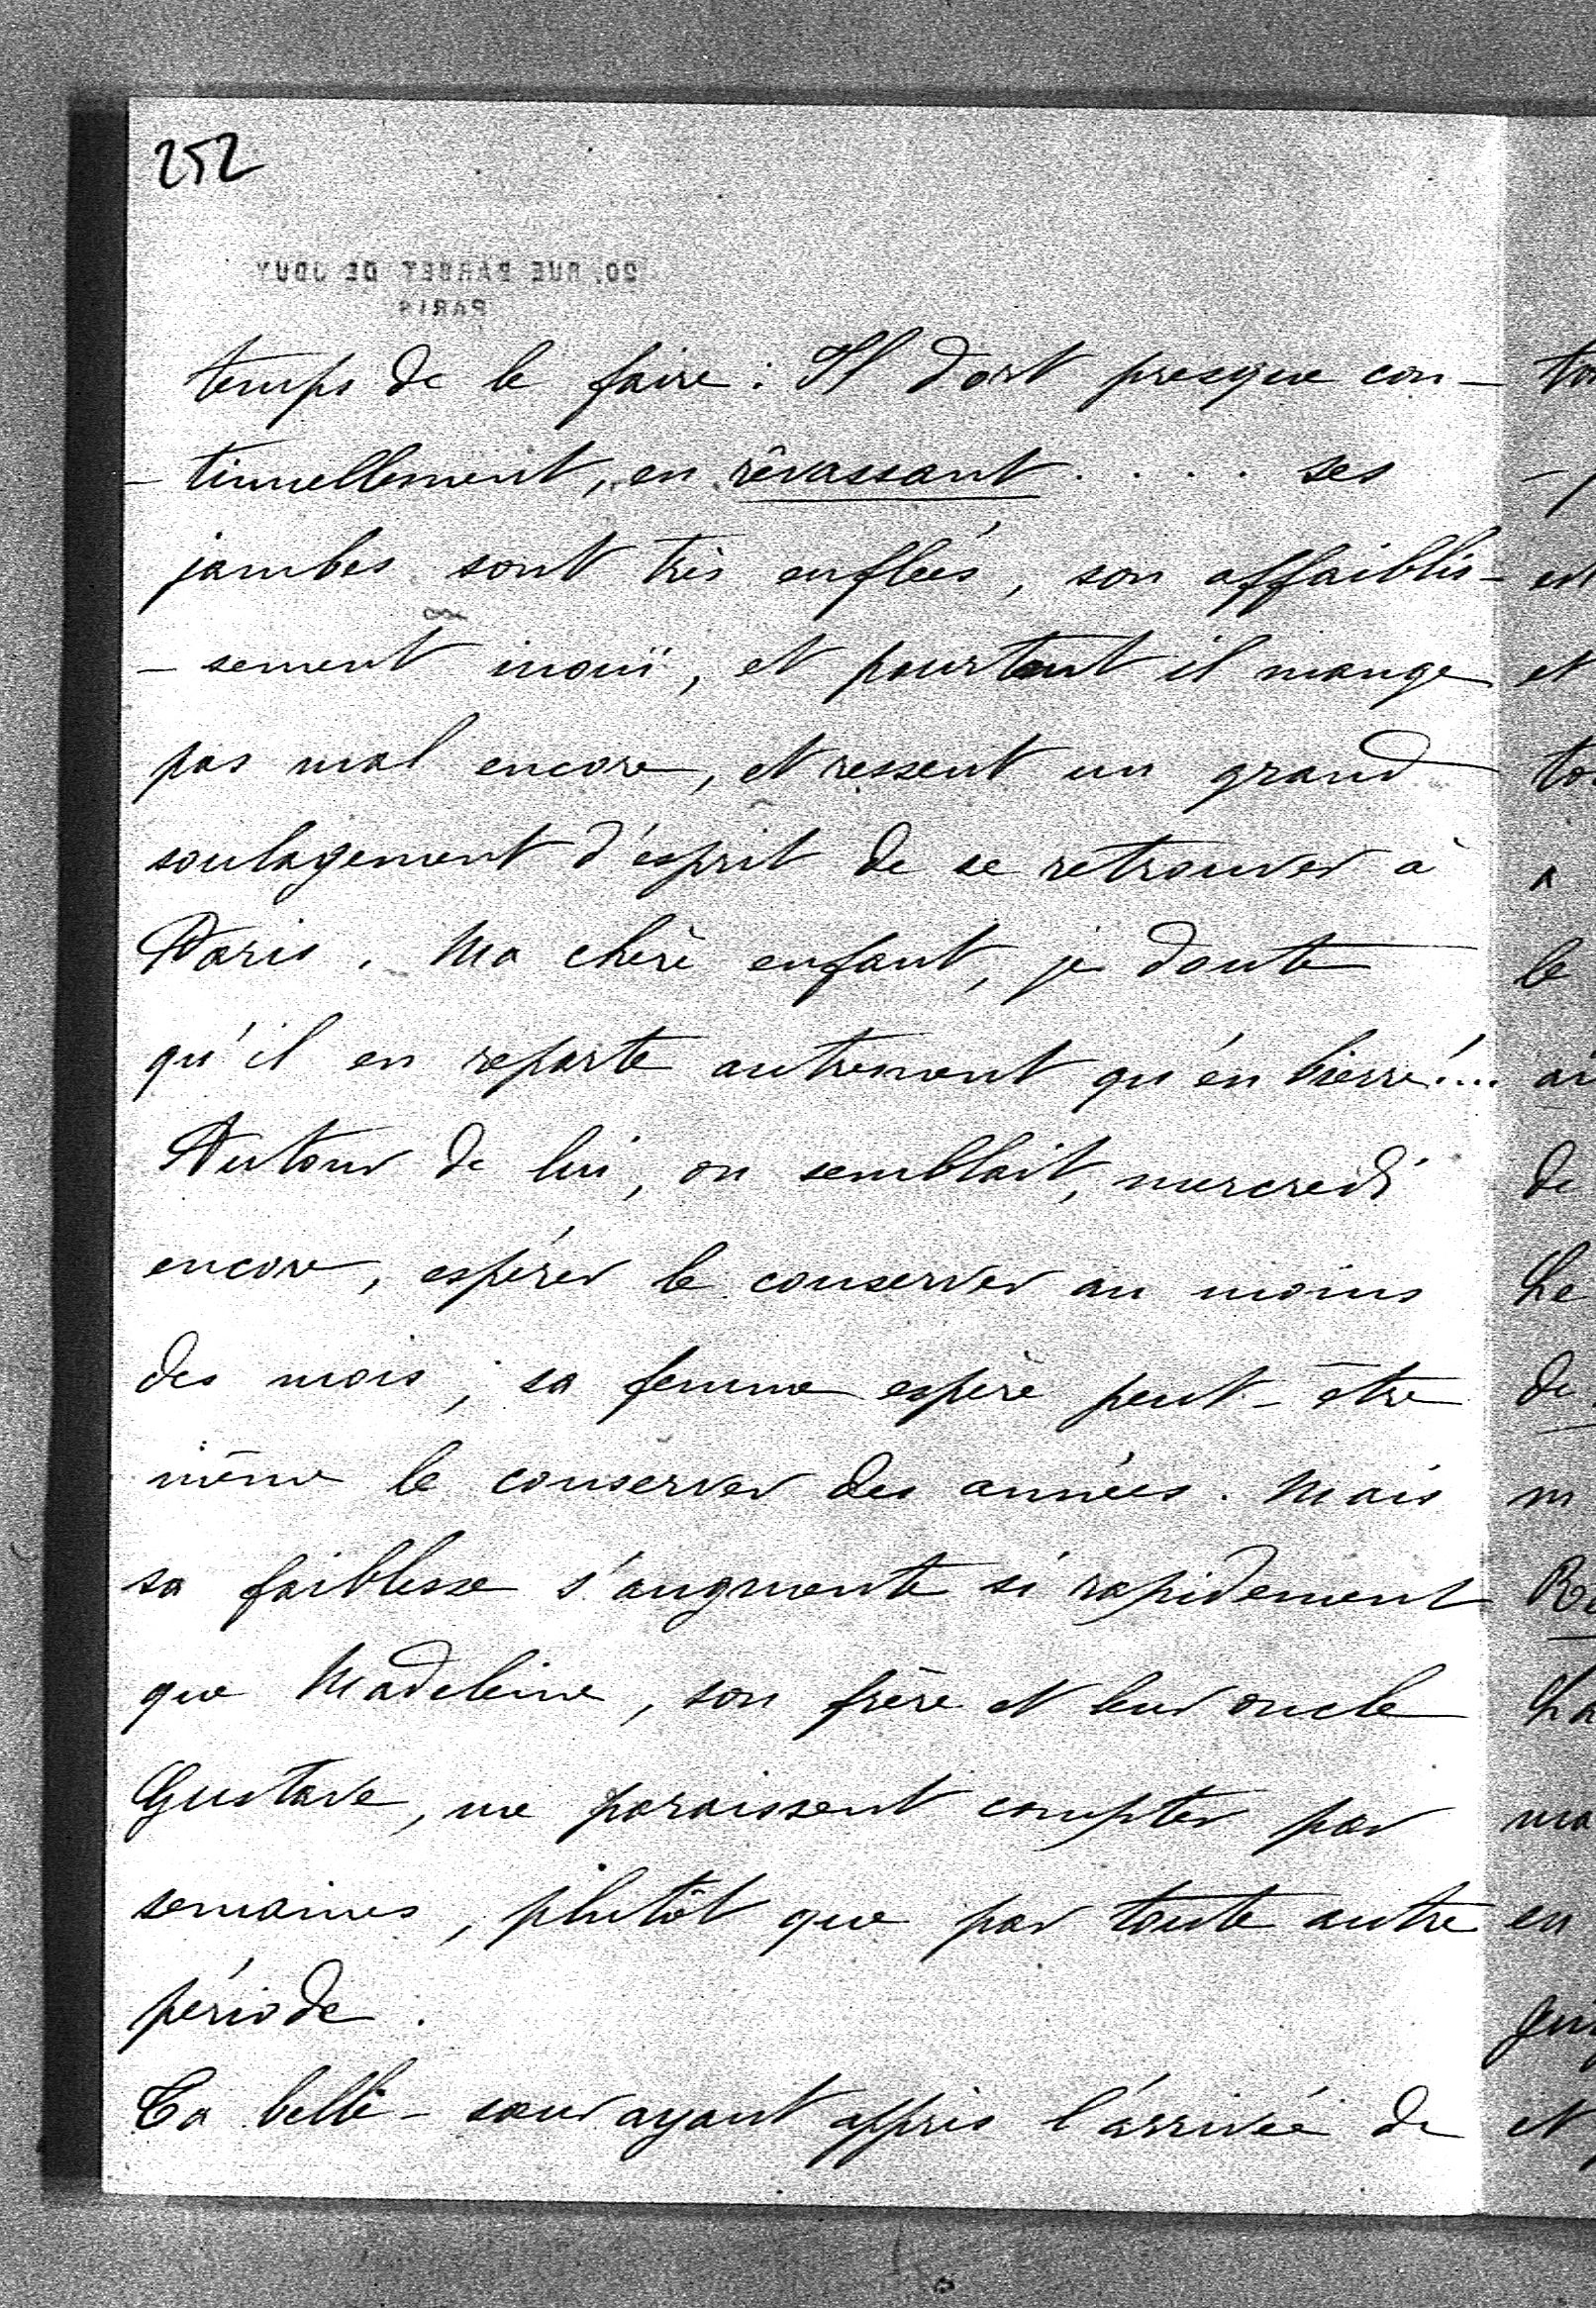 252
20, RUE BARBET DE JOUY
PARIS
temps de le faire : Il dort presque con-
-tinuellement, en rêvassant . . . . ses
jambes sont très enflées, son affaiblis-
-sement inouï, et pourtant il mange
pas mal encore, et ressent un grand
soulagement d'esprit de se retrouver à
Paris. Ma chère enfant, je doute
qu'il en reparte autrement qu'en bière!...
Autour de lui, on semblait, mercredi
encore, espérer le conserver au moins
des mois ; sa femme espère peut-être
même le conserver des années. Mais
sa faiblesse s'augmente si rapidement
que Madeleine, son frère et leur oncle
Gustave, me paraissent compter par
semaines, plutôt que par toute autre
période.
Ta belle-sœur ayant appris l'arrivée de